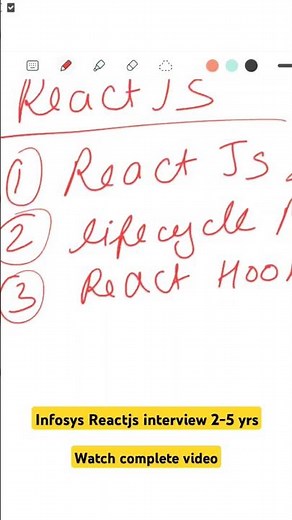 React JS
1 React Js
2 lifecycle
3 React Hoo
Infosys Reactjs interview 2-5 yrs
Watch complete video